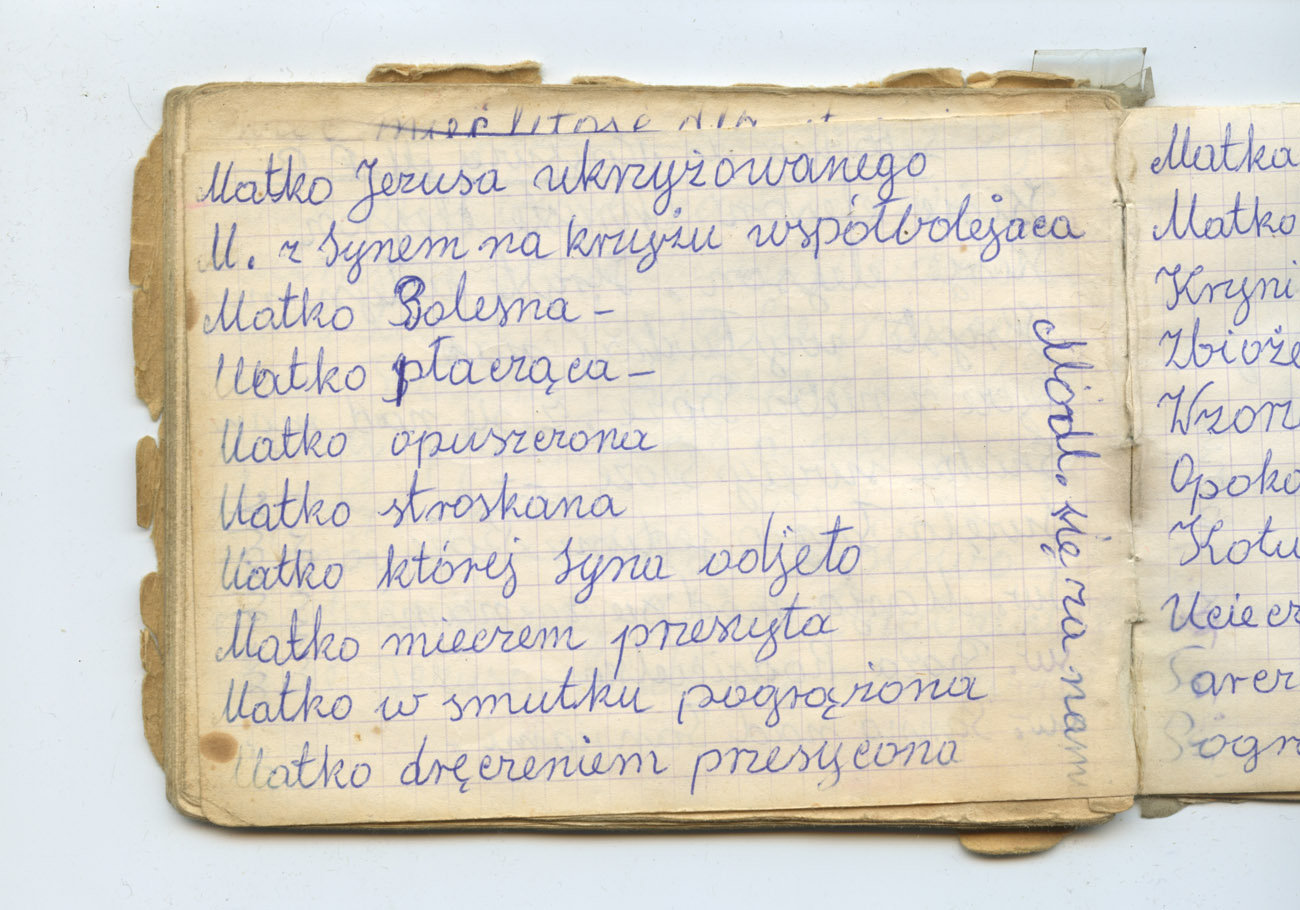 Matko Jezusa ukrzyżowanego
M. z Synem na krzyżu współbolejaca
Matko Bolesna –
Matko płacząca –
Matko opuszczona
Matko stroskana
Matko której Syna odjeto
Matko mieczem przeszyta
Matko w smutku pogrążona
Matko dręczeniem przesycona
Módl. się za nam
Matka
Matko
Kryni
Zbioże
Wzorz
Opoko
Kotu
Uciecz
Tarcz